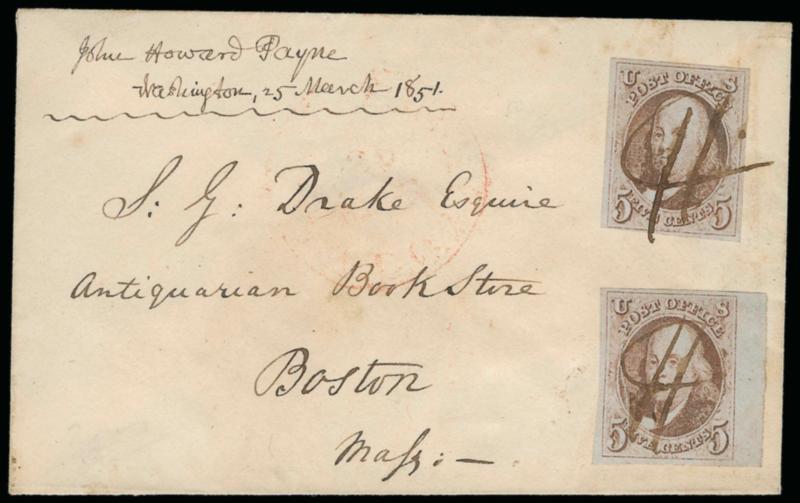 John Howard Payne
Washington, 25 March 1851.
S. G: Drake Esquire
Antiquarian Book Store
Boston
Mass: —
U S
POST OFFICE
5 FIVE CENTS 5
U S
POST OFFICE
5 FIVE CENTS 5